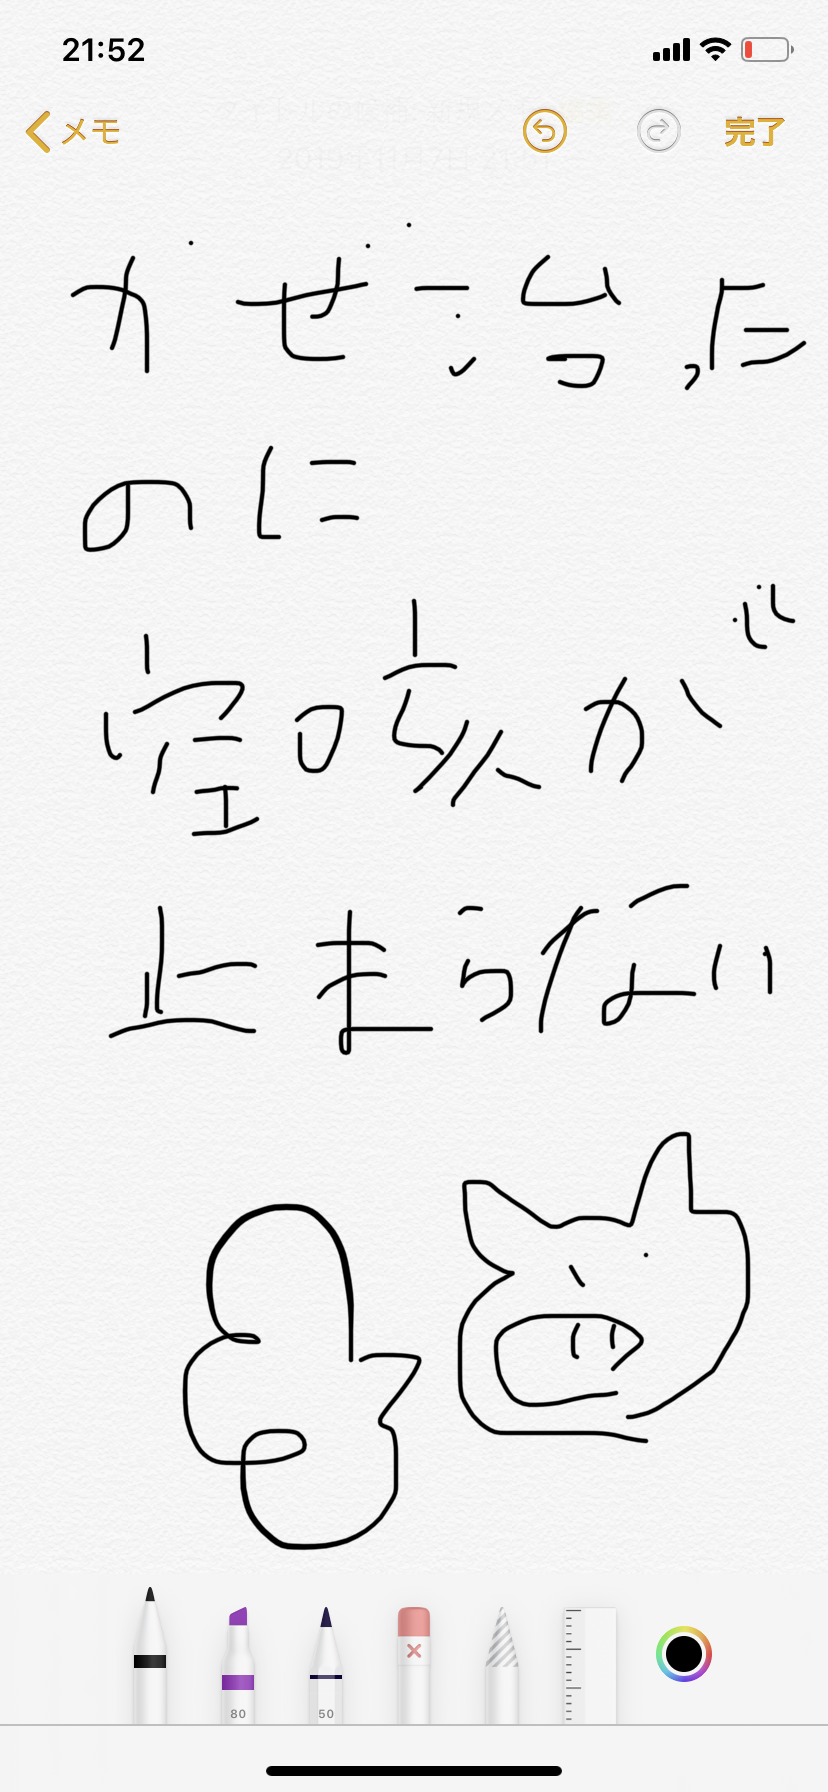 21:52
メモ
完了
かぜ治った
のに
空咳が
止まらない
80
50